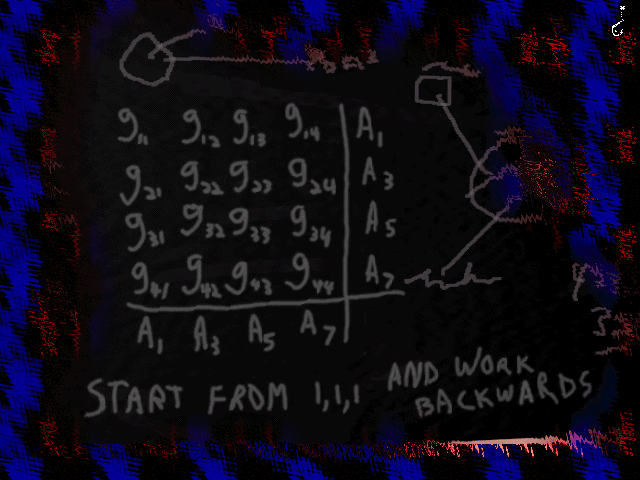 g₁₁ g₁₂ g₁₃ g₁₄ A₁
g₂₁ g₂₂ g₂₃ g₂₄ A₃
g₃₁ g₃₂ g₃₃ g₃₄ A₅
g₄₁ g₄₂ g₄₃ g₄₄ A₇
A₁ A₃ A₅ A₇
START FROM 1,1,1 AND WORK
BACKWARDS